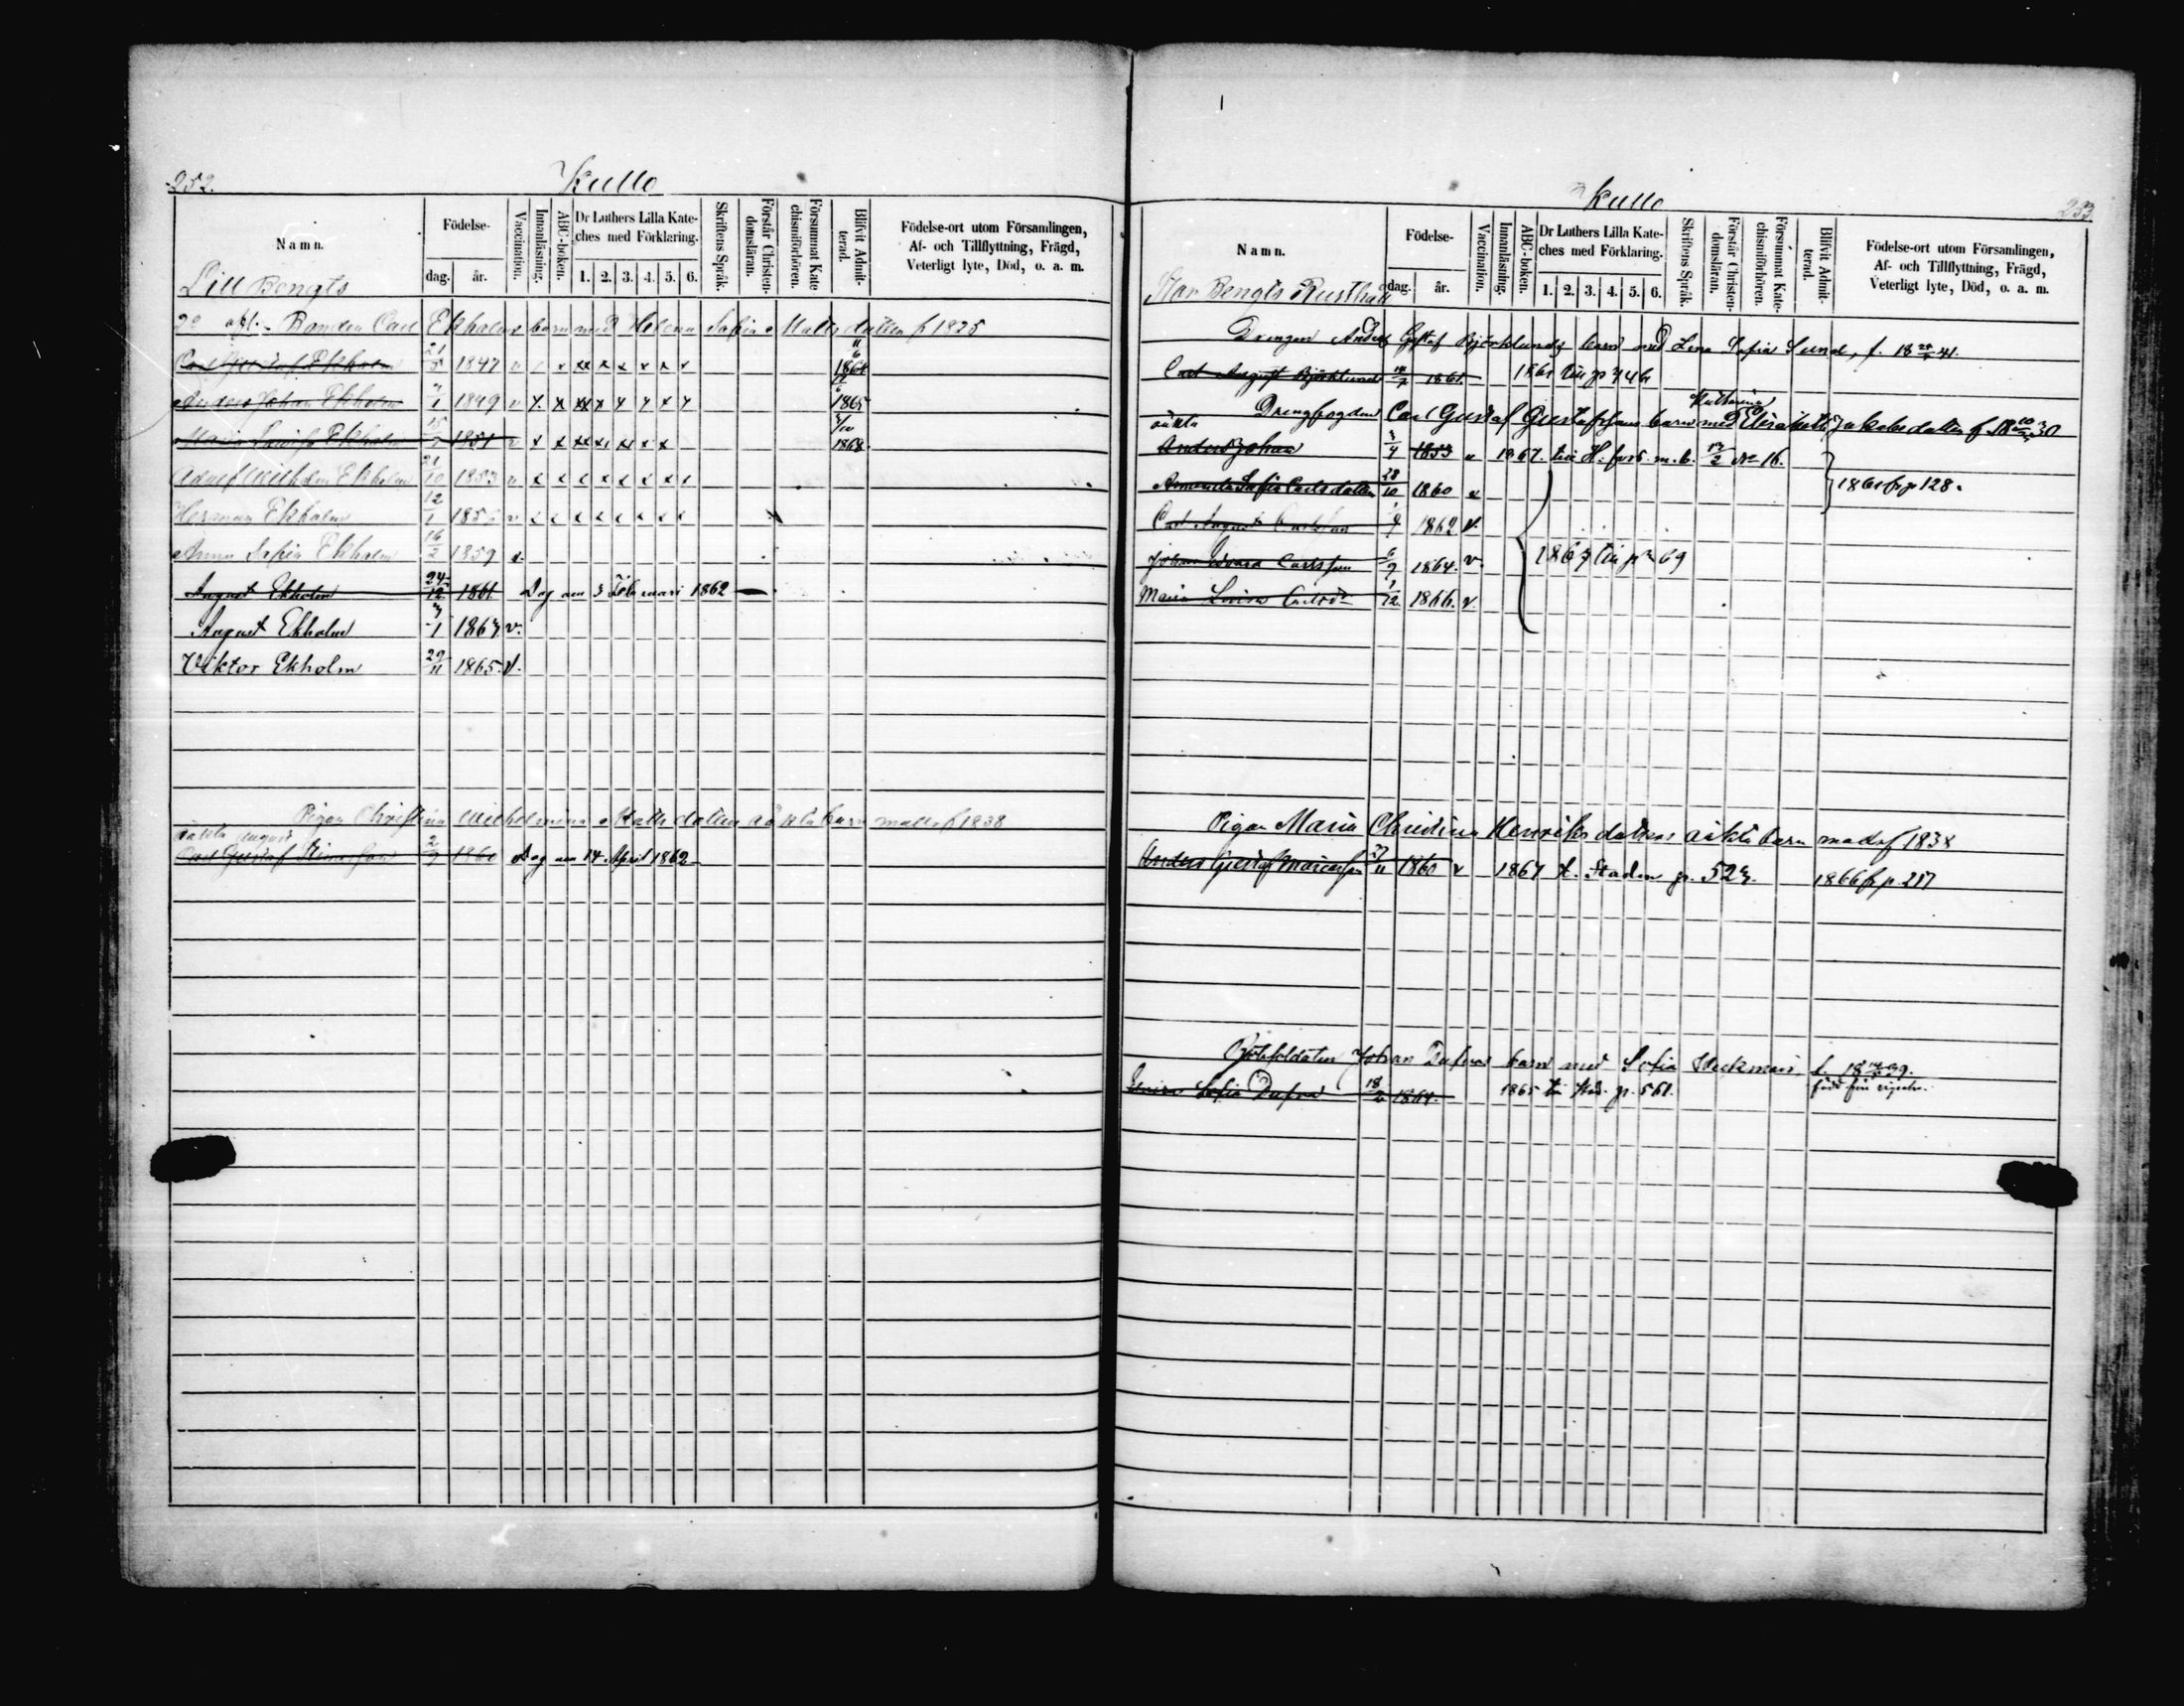 252.
Kullo
Namn.
Födelse-
dag.
år.
Vaccination.
Innanläsning.
ABC-boken.
Dr Luthers Lilla Kate-
ches med Förklaring.
1. 2. 3. 4. 5. 6.
Skriftens Språk.
Förstår Christen-
domsläran.
Försummat Kate-
chismiförhören.
Blifvit Admit-
terad.
Födelse-ort utom Församlingen,
Af- och Tillflyttning, Frägd,
Veterligt lyte, Död, o. a. m.
Lill Bengts
Bonden Carl Ekholms barn med Helena Sofia Matts dotter f 1825
Carl Gustaf Ekholm 21/5 1847 v 1864
Anders Johan Ekholm 7/1 1849 v 1865
Maria Lovisa Ekholm 15/7 1851 v 1868
Adolf Wilhelm Ekholm 21/10 1853 v
Herman Ekholm 12/1 1856 v
Anna Sofia Ekholm 16/2 1859 v.
August Ekholm 24/12 1861 Dog den 3 Februari 1862
August Ekholm 3/1 1863 v.
Viktor Ekholm 29/11 1865 v.
Pigan Christina Wilhelmina Matts dotters oäkta barn f 1838
oäkta August
Carl Gustaf 2/9 1860 Dog den 14 April 1862
253.
Kullo
Namn.
Födelse-
dag.
år.
Vaccination.
Innanläsning.
ABC-boken.
Dr Luthers Lilla Kate-
ches med Förklaring.
1. 2. 3. 4. 5. 6.
Skriftens Språk.
Förstår Christen-
domsläran.
Försummat Kate-
chismiförhören.
Blifvit Admit-
terad.
Födelse-ort utom Församlingen,
Af- och Tillflyttning, Frägd,
Veterligt lyte, Död, o. a. m.
Stor Bengts Rusthåll
Drengen Anders Gustaf Björklunds barn med Lena Sofia Sund, f. 18 41.
Carl August Björklund 1861. 1861 till p 746
Katharina
Drengfogden Carl Gustaf Gustafssons barn med Elisabeth Jakobs dotter f. 18 30
oäkta
Anders Johan 3/4 1853 v 1867. till H. fors. m. b. 17/2 No 16.
Amanda Sofia Carls dotter 28/10 1860 v 1861 fr p 128.
Carl August Carlsson 1862 v.
Johan Edvard Carlsson 6/9 1864. v. 1867 till p 69
Maria Lovisa Carlsdr 1/12 1866. v.
Pigan Maria Christina Henriks dotters oäkta barn f 1838
Anders Gustaf Mariasson 27/11 1860 v 1867 t. Staden p. 523. 1866 fr p 217
Båtsfoldaten Johan Dufvas barn med Sofia Heckman f. 18 39.
Lovisa Sofia Dufva 18/2 1864. 1865 till Stad. p. 561.